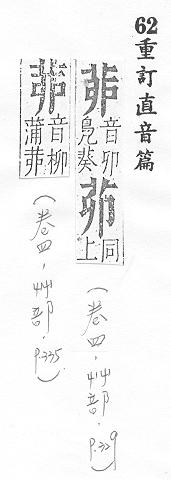 62重訂直音篇
音卯鳧葵茆同上
(卷四,艸部,p.329)
音柳蒲茆
(卷四,艸部,p.335)